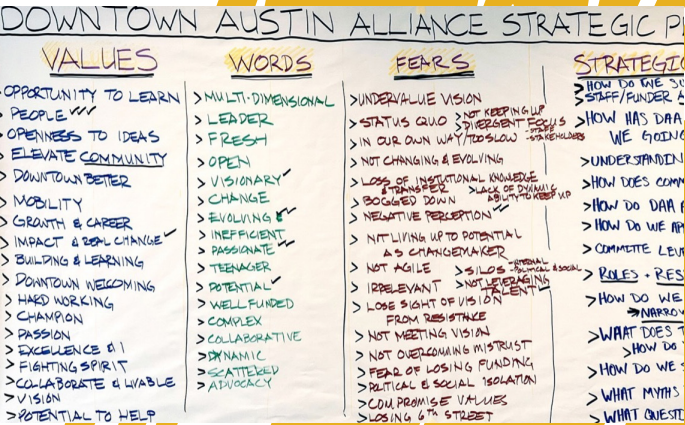 DOWNTOWN AUSTIN ALLIANCE STRATEGIC
VALUES
OPPORTUNITY TO LEARN
> PEOPLE ✓✓✓
OPENNESS TO IDEAS
> ELEVATE COMMUNITY
> DOWNTOWN BETTER
> MOBILITY
> GROWTH & CAREER
> IMPACT & REAL CHANGE ✓
> BUILDING & LEARNING
> DOWNTOWN WELCOMING
> HARD WORKING
> CHAMPION
> PASSION
> EXCELLENCE
> FIGHTING SPIRIT
> COLLABORATE & LIVABLE
> VISION
> POTENTIAL TO HELP
WORDS
> MULTI-DIMENSIONAL
> LEADER
> FRESH
> OPEN
> VISIONARY ✓
> CHANGE
> EVOLVING ✓✓
> INEFFICIENT
> PASSIONATE ✓✓
> TEENAGER
> POTENTIAL ✓
> WELL FUNDED
> COMPLEX
> COLLABORATIVE
> DYNAMIC
> SCATTERED
> ADVOCACY
FEARS
> UNDERVALUE VISION
> STATUS QUO > NOT KEEPING UP
> DIVERGENT FOCUS
- STAFF
- STAKEHOLDERS
> IN OUR OWN WAY/TOO SLOW
> NOT CHANGING & EVOLVING
> LOSS OF INSTUTIONAL KNOWLEDGE
& TRANSFER
> LACK OF DYNAMIC
ABILITY TO KEEP UP
> BOGGED DOWN
> NEGATIVE PERCEPTION ✓✓
> NOT LIVING UP TO POTENTIAL
AS CHANGEMAKER
> NOT AGILE
> SILOS - INTERNAL
- POLITICAL & SOCIAL
> IRRELEVANT
> NOT LEVERAGING
TALENT ✓
> LOSE SIGHT OF VISION
FROM RESISTANCE
> NOT MEETING VISION
> NOT OVERCOMING MISTRUST
> FEAR OF LOSING FUNDING
> POLITICAL & SOCIAL ISOLATION
> COMPROMISE VALUES
> LOSING 6TH STREET
STRATEGIC
> HOW DO WE
> STAFF/FUNDER
> HOW HAS DAA
WE GOING
> UNDERSTANDIN
> HOW DOES COMM
> HOW DO DAA
> HOW DO WE
> COMMITTE LEV
> ROLES + RES
> HOW DO WE
→ NARROW
> WHAT DOES
> HOW DO
> HOW DO WE
> WHAT MYTHS
> WHAT QUESTI